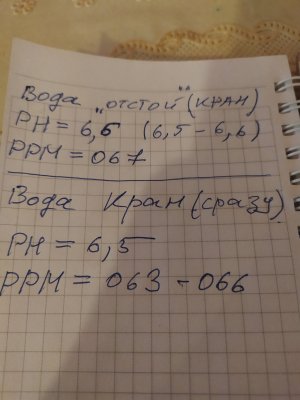 Вода "отстой" (КРАН)
PH = 6,5 (6,5 - 6,6)
PPM = 067
Вода Кран (сразу)
PH = 6,5
PPM = 063 - 066